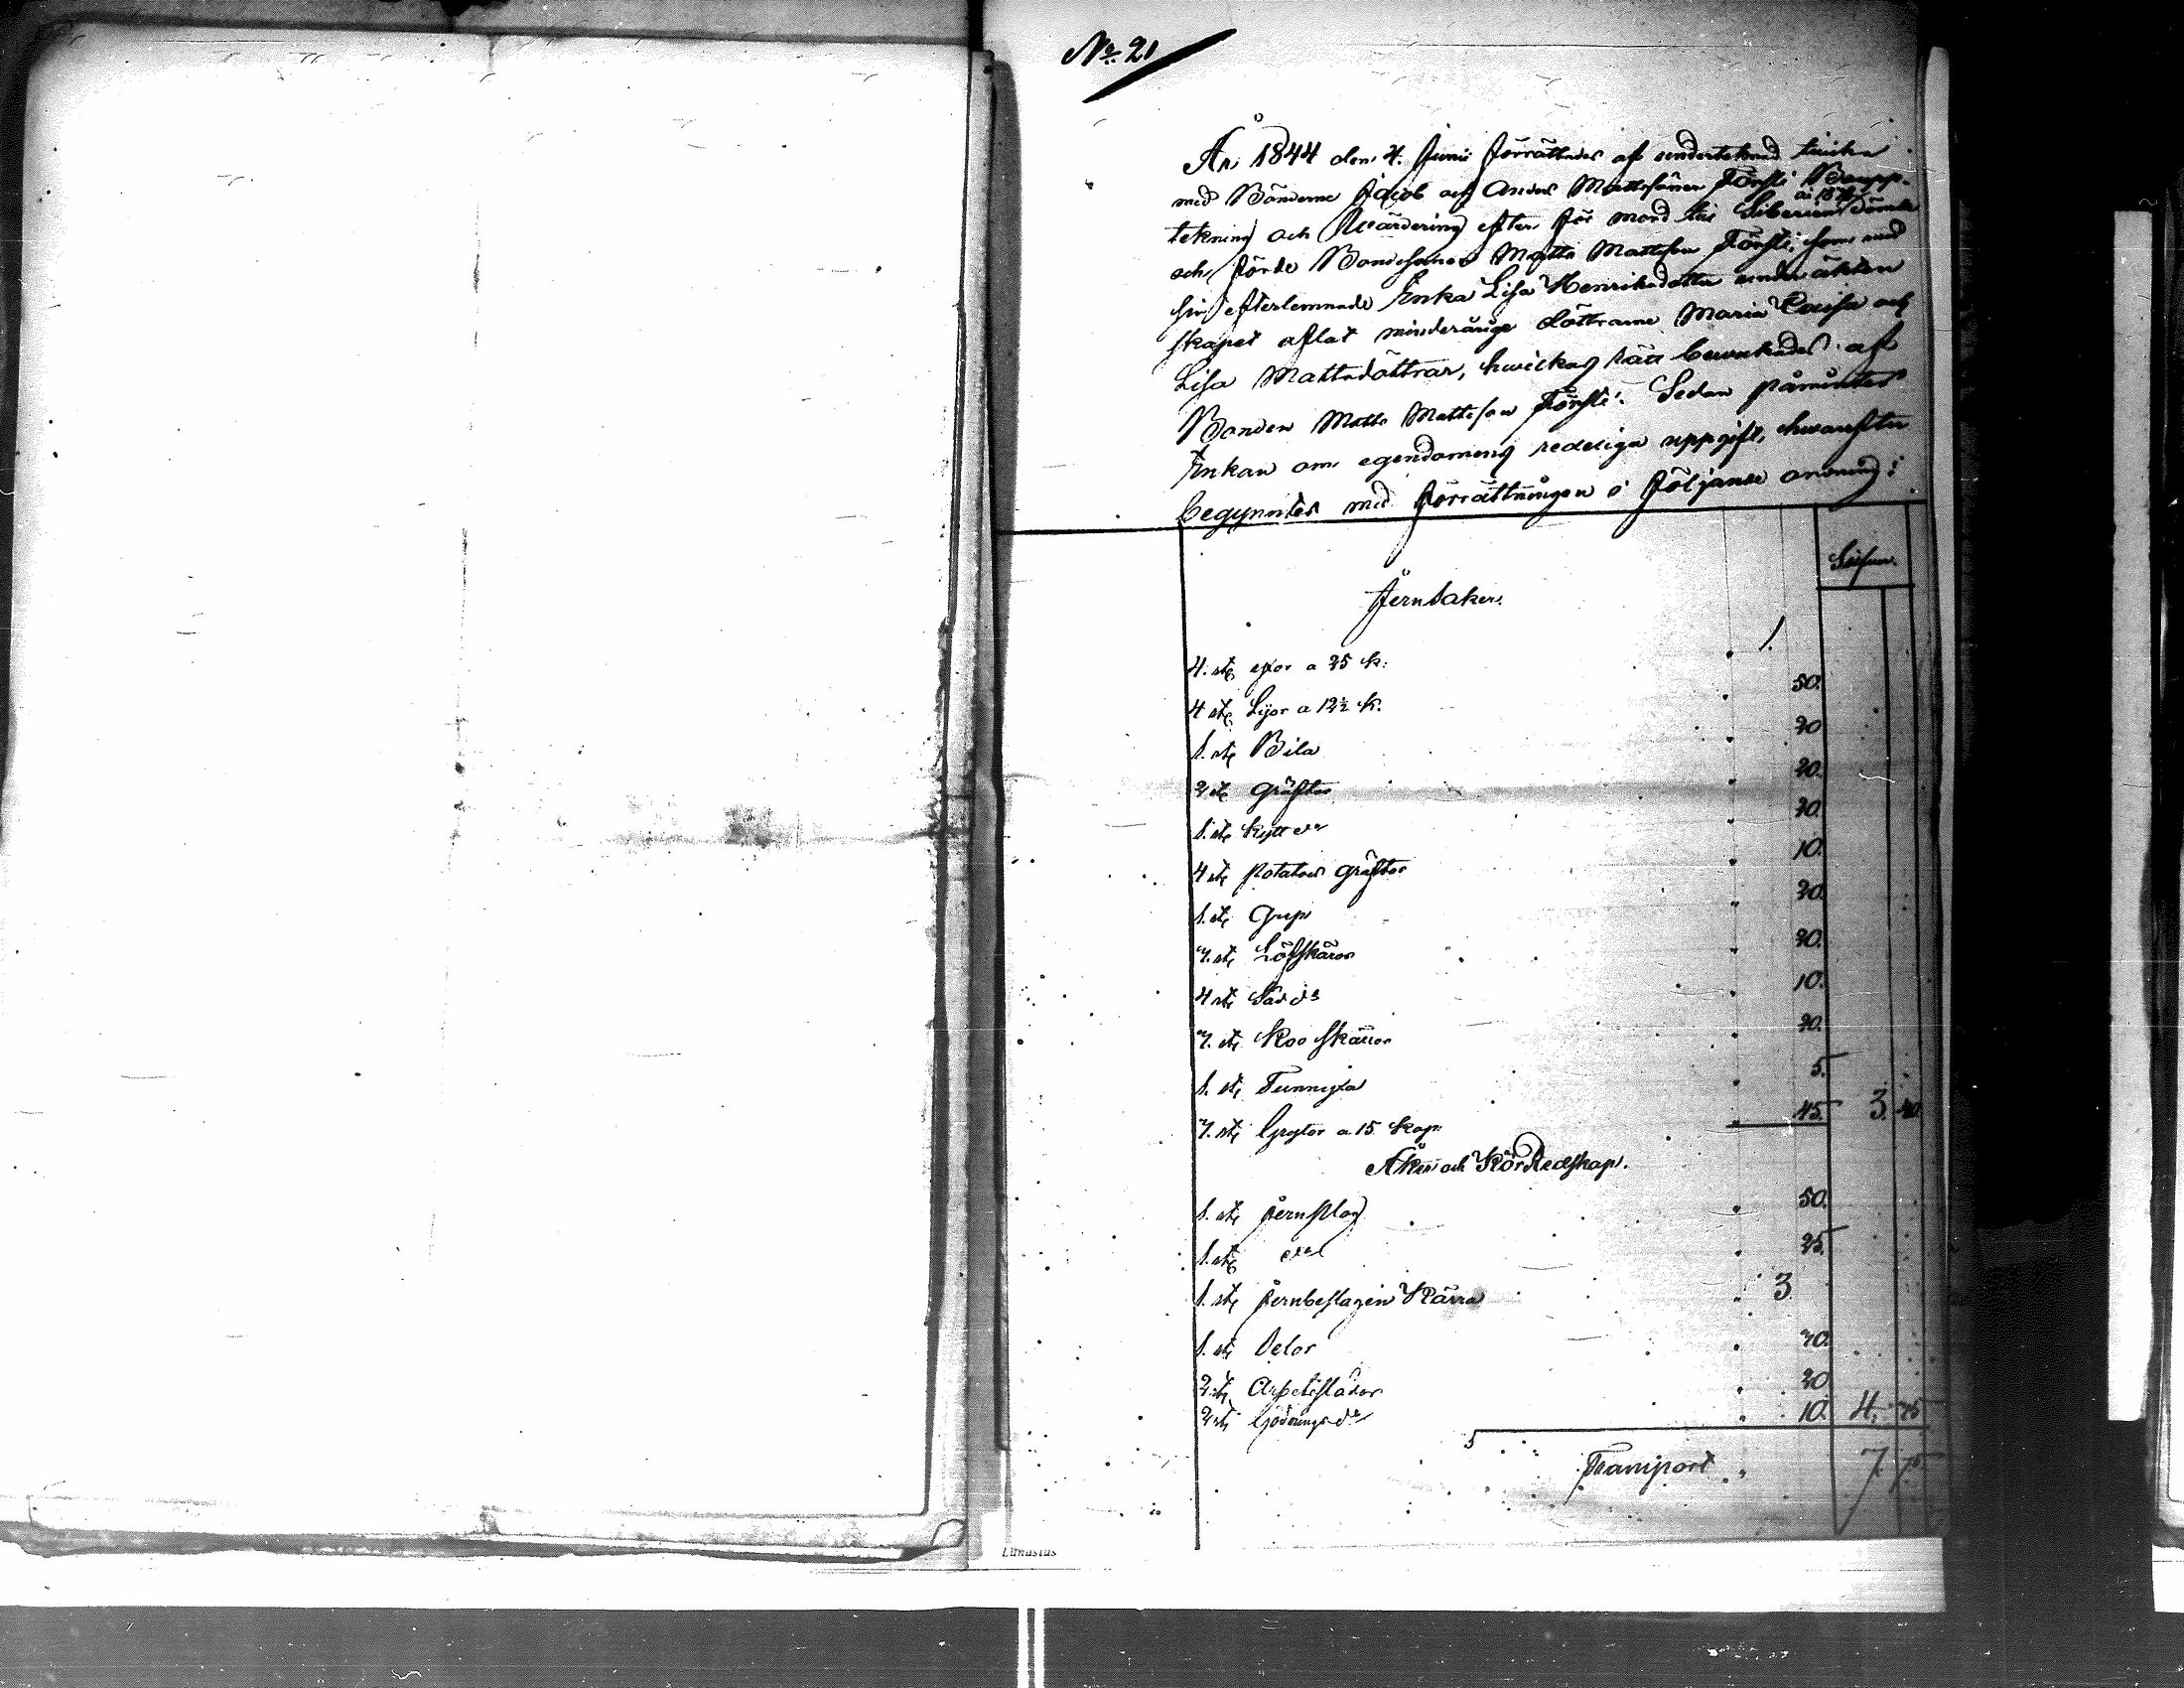 No. 21
År 1844 den 4. Junii förrättades af underteknad tillika
med Bönderne Jacob och Anders Mattssöner Försti Boupp-
tekning och Wärdering efter för mord till Siberien år 18 dömde
och förde Bondesonen Matts Mattsson Försti, som med
sin efterlemnade Enka Lisa Henriksdotter under äkten
skapet aflat minderårige döttrarne Maria Lovisa och
Lisa Mattsdöttrar, hwilkas rätt bewakades af
Bonden Matts Mattsson Försti. Sedan påmintes
Enkan om egendomens redeliga uppgift, hwarefter
begynntes med förrättningen i följande ordning:
Silfwer.
Jernsaker.
4. st. yxor a 25 k: 1.
4 st. Lijor a 12½ k. 50.
1. st. Bila 20
2 st. gräftor 20.
1. st. kytt do 20.
4 st. potatoes gräftor 10.
1. st. Grep 20.
7. st. Löfskäror 20.
4 st. Säd do 10.
7. st. Skoo 20.
1. st. 5.
7. st. Grytor a 15 kop: 45. 3. 40
Åker och Kör Redskap.
1. st. jernplog 50.
1. st. do 25.
1. st. jernbeslagen Kärra 3
1. st. 70.
2 st. Arbetsslädor 20
2 st. Gödnings do 10. 4. 75
Transport 7 75
Lunastus